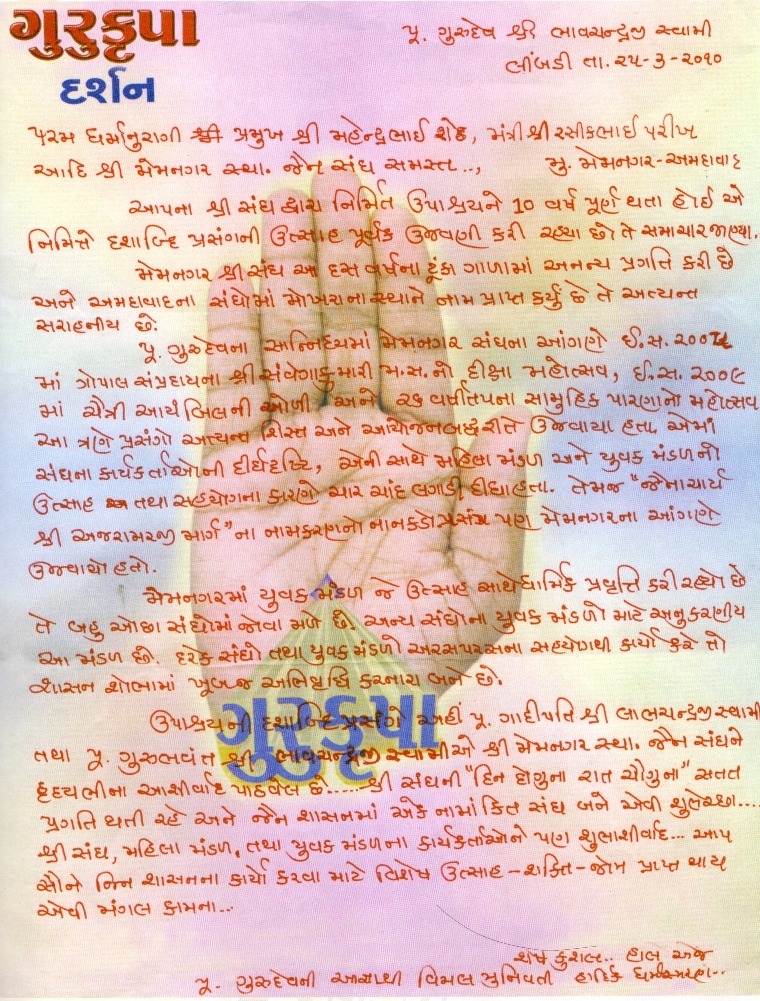 ગુરુકૃપા
દર્શન
પૂ. ગુરુદેવ શ્રી ભાવચન્દ્રજી સ્વામી
લીંબડી તા. ૨૫-૩-૨૦૧૦
પરમ ધર્માનુરાગી શ્રી પ્રમુખ શ્રી મહેન્દ્રભાઈ શેઠ, મંત્રીશ્રી રસીકભાઈ પરીખ
આદિ શ્રી મેમનગર સ્થા. જૈન સંઘ સમસ્ત..,
મુ. મેમનગર-અમદાવાદ
આપના શ્રી સંઘ દ્વારા નિર્મિત ઉપાશ્રયને 10 વર્ષ પૂર્ણ થતા હોઈ એ
નિમિત્તે દશાબ્દિ પ્રસંગની ઉત્સાહ પૂર્વક ઉજવણી કરી રહ્યા છો તે સમાચાર જાણ્યા.
મેમનગર શ્રી સંઘે આ દસ વર્ષના ટૂંકા ગાળામાં અનન્ય પ્રગતિ કરી છે
અને અમદાવાદના સંઘોમાં મોખરાના સ્થાને નામ પ્રાપ્ત કર્યું છે તે અત્યન્ત
સરાહનીય છે.
પૂ. ગુરુદેવના સાન્નિધ્યમાં મેમનગર સંઘના આંગણે ઈ.સ.
માં ગોપાલ સંપ્રદાયના શ્રી સંવેગાકુમારી મ.સ.નો દીક્ષા મહોત્સવ, ઈ.સ. ૨૦૦૯
માં ચૈત્રી આયંબિલની ઓળી અને ૨૬ વર્ષીતપના સામુહિક પારણાનો મહોત્સવ
આ ત્રણે પ્રસંગો અત્યન્ત શિસ્ત અને આયોજનબદ્ધ રીતે ઉજવાયા હતા. એમાં
સંઘના કાર્યકર્તાઓની દીર્ઘદષ્ટિ, એની સાથે મહિલા મંડળ અને યુવક મંડળની
ઉત્સાહ તથા સહયોગના કારણે ચાર ચાંદ લગાડી દીધા હતા. તેમજ "જૈનાચાર્ય
શ્રી અજરામરજી માર્ગ"ના નામકરણનો નાનકડો પ્રસંગ પણ મેમનગરના આંગણે
ઉજવાયો હતો.
મેમનગરમાં યુવક મંડળ જે ઉત્સાહ સાથે ધાર્મિક પ્રવૃત્તિ કરી રહ્યો છે
તે બહુ ઓછા સંઘોમાં જોવા મળે છે. અન્ય સંઘોના યુવક મંડળો માટે અનુકરણીય
આ મંડળ છે. દરેક સંઘો તથા યુવક મંડળો અરસપરસના સહયોગથી કાર્યો કરે તો
શાસન શોભામાં ખૂબજ અભિવૃદ્ધિ કરનારા બને છે.
ગુરુકૃપા
ઉપાશ્રયની દશાબ્દિ પ્રસંગે અહીં પૂ. ગાદીપતિ શ્રી લાલચન્દ્રજી સ્વામી
તથા પૂ. ગુરુભવંત શ્રી ભાવચન્દ્રજી સ્વામીએ શ્રી મેમનગર સ્થા. જૈન સંઘને
હૃદયભીના આશીર્વાદ પાઠવેલ છે..... શ્રી સંઘની "દિન દોગુના રાત ચૌગુના" સતત
પ્રગતિ થતી રહે અને જૈન શાસનમાં એક નામાંકિત સંઘ બને એવી શુભેચ્છા....
શ્રી સંઘ, મહિલા મંડળ, તથા યુવક મંડળના કાર્યકર્તાઓને પણ શુભાશીર્વાદ... આપ
સૌને જિન શાસનના કાર્યો કરવા માટે વિશેષ ઉત્સાહ-શક્તિ-જોમ પ્રાપ્ત થાય
એવી મંગલ કામના...
શેષ કુશલ.. હાલ એજ
પૂ. ગુરુદેવની આજ્ઞાથી વિમલ મુનિવતી હાર્દિક ધર્મસ્મરણ..